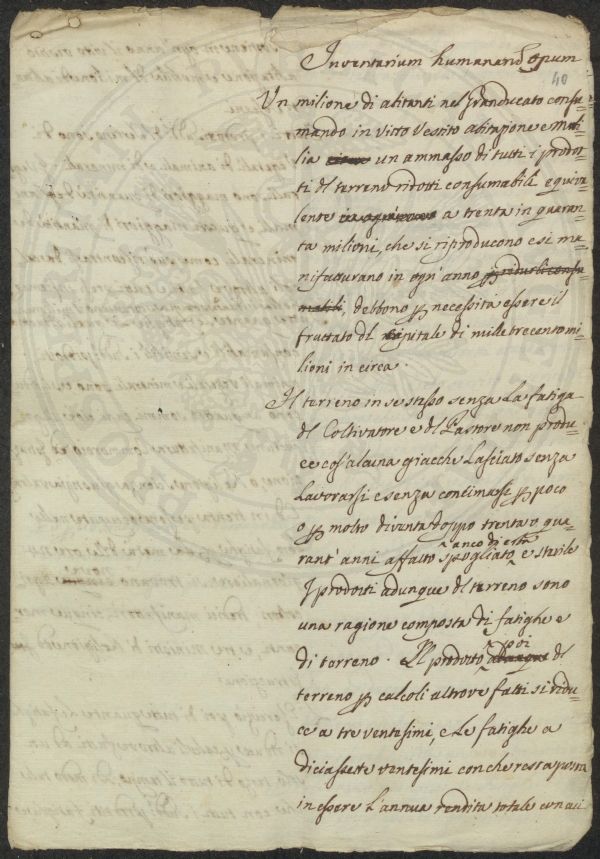 Inventarium humanarum Opum
40
Un milione di abitanti nel Granducato consu=
mando in vitto Vestito abitazione e mobi=
lia un ammasso di tutti i prodot=
ti del terreno ridotti consumabili equiva=
lente a trenta in quaran=
ta milioni, che si riproducono e si ma=
nifatturano in ogn' anno
debbono per necessita essere il
fruttato del capitale di mille trecento mi=
lioni in circa.
Il terreno in se stesso senza la fatiga
del Coltivatore e del Pastore non produ=
ce cos' alcuna giacche lasciato senza
lavorarsi e senza concimarsi per poco
o per molto diventa doppo trenta o qua=
rant' anni affatto spogliato e sterile
I prodotti adunque del terreno sono
una ragione composta di fatighe e
di terreno. Il prodotto poi del
terreno per calcoli altrove fatti si ridu=
ce a tre ventesimi, e le fatighe a
diciassette ventesimi con che resta
in essere l'annua rendita totale con cui